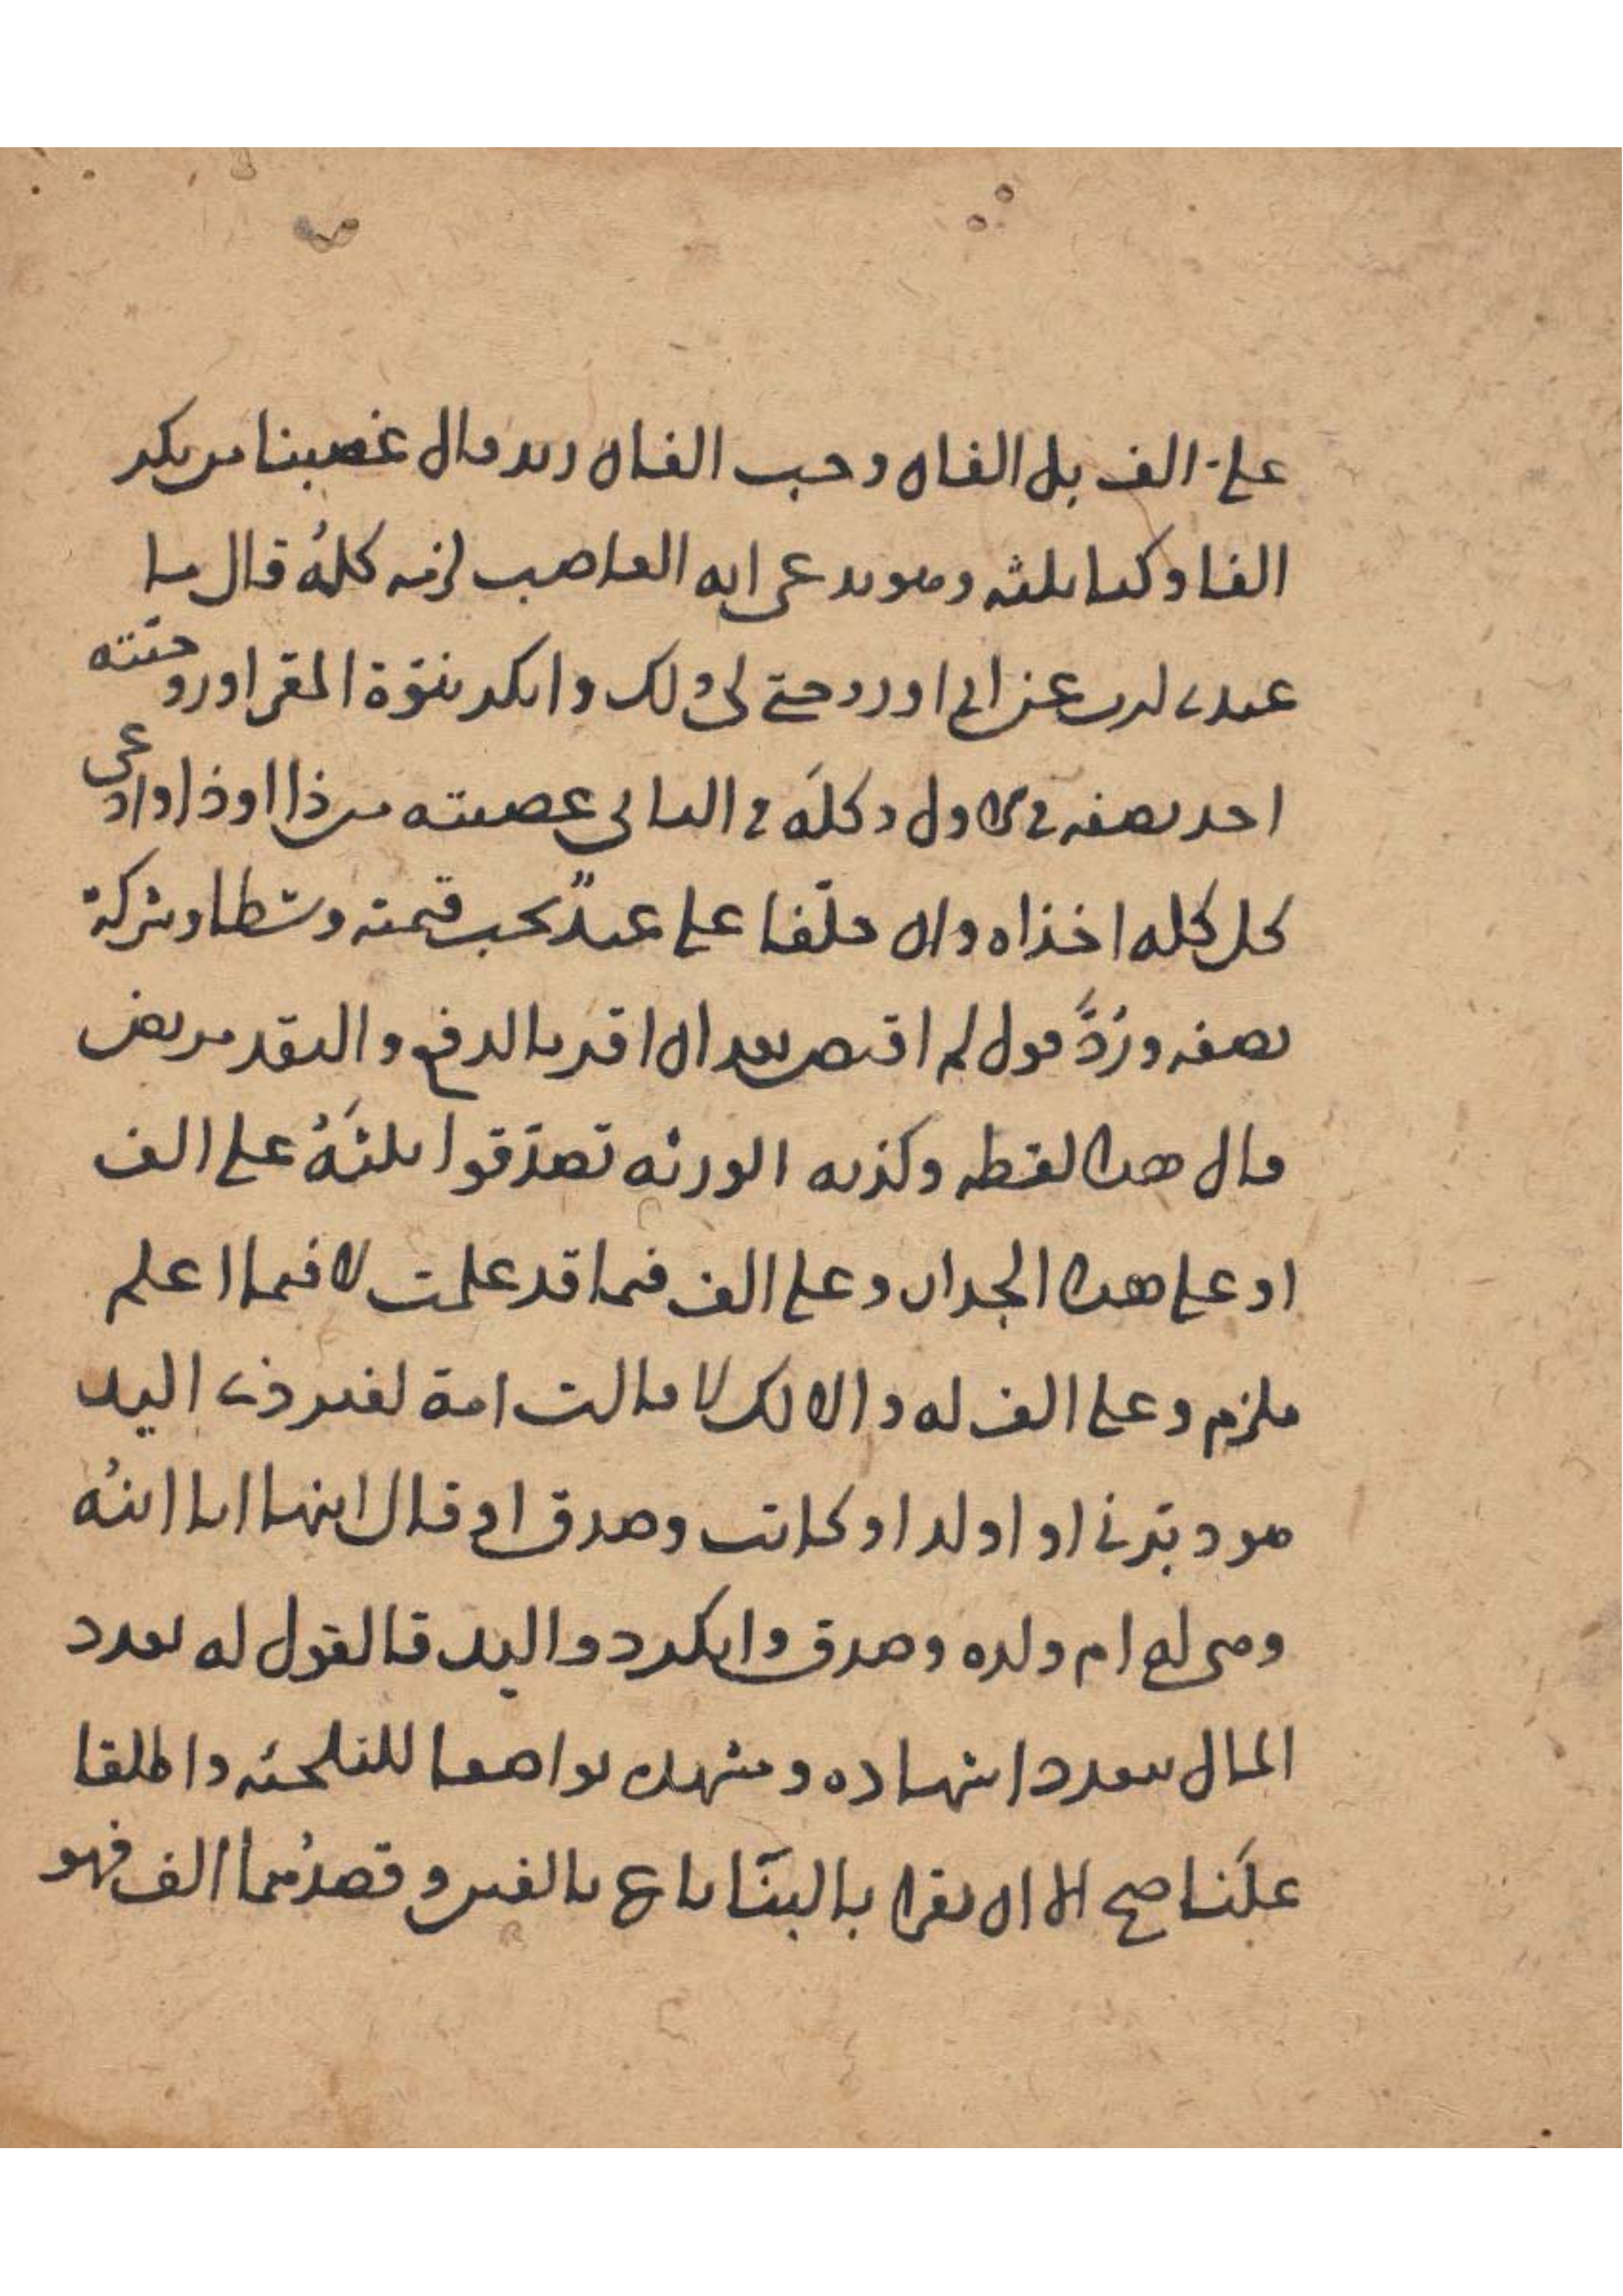 علي الف بل الفان وجب الفان زيد قال غصبنا من بكر
الفا وكنا ثلثه وهو يدعي انه الغاصب لزمه كله قال ما
عبدي لابن عن ابي او زوجتي لي ولك وانكر بنوة المقر او زوجيته
اخذ نصفه في الاول وكله في الثاني غصبته من ذا او ذا وادعى
كل كله اخذاه وان حلفا على عبد يجب قيمته وسطا وشركة
نصفه ورد قول لم اقبض بعد ان اقر بالدفع والنقد مريض
قال هذه لقطه وكذبه الورثه تصدقوا بثلثه علي الف
او على هذا الجدار وعلي الف فيما قد علمت لا فيما اعلم
ملزم وعلي الف له والا لك لا قالت امة لغير ذي اليد
هو دبرني او اولد او كاتب وصدق او قال ابنها انا ابنه
وهي له ام ولده وصدق وانكر ذو اليد فالقول له تعدد
المال بتعدد اشهاده ومشهده تواضعا للتلجئه واطلقا
علنا صح الا ان يقرا بالبنا باع بالفين وقصدهما الف فهو